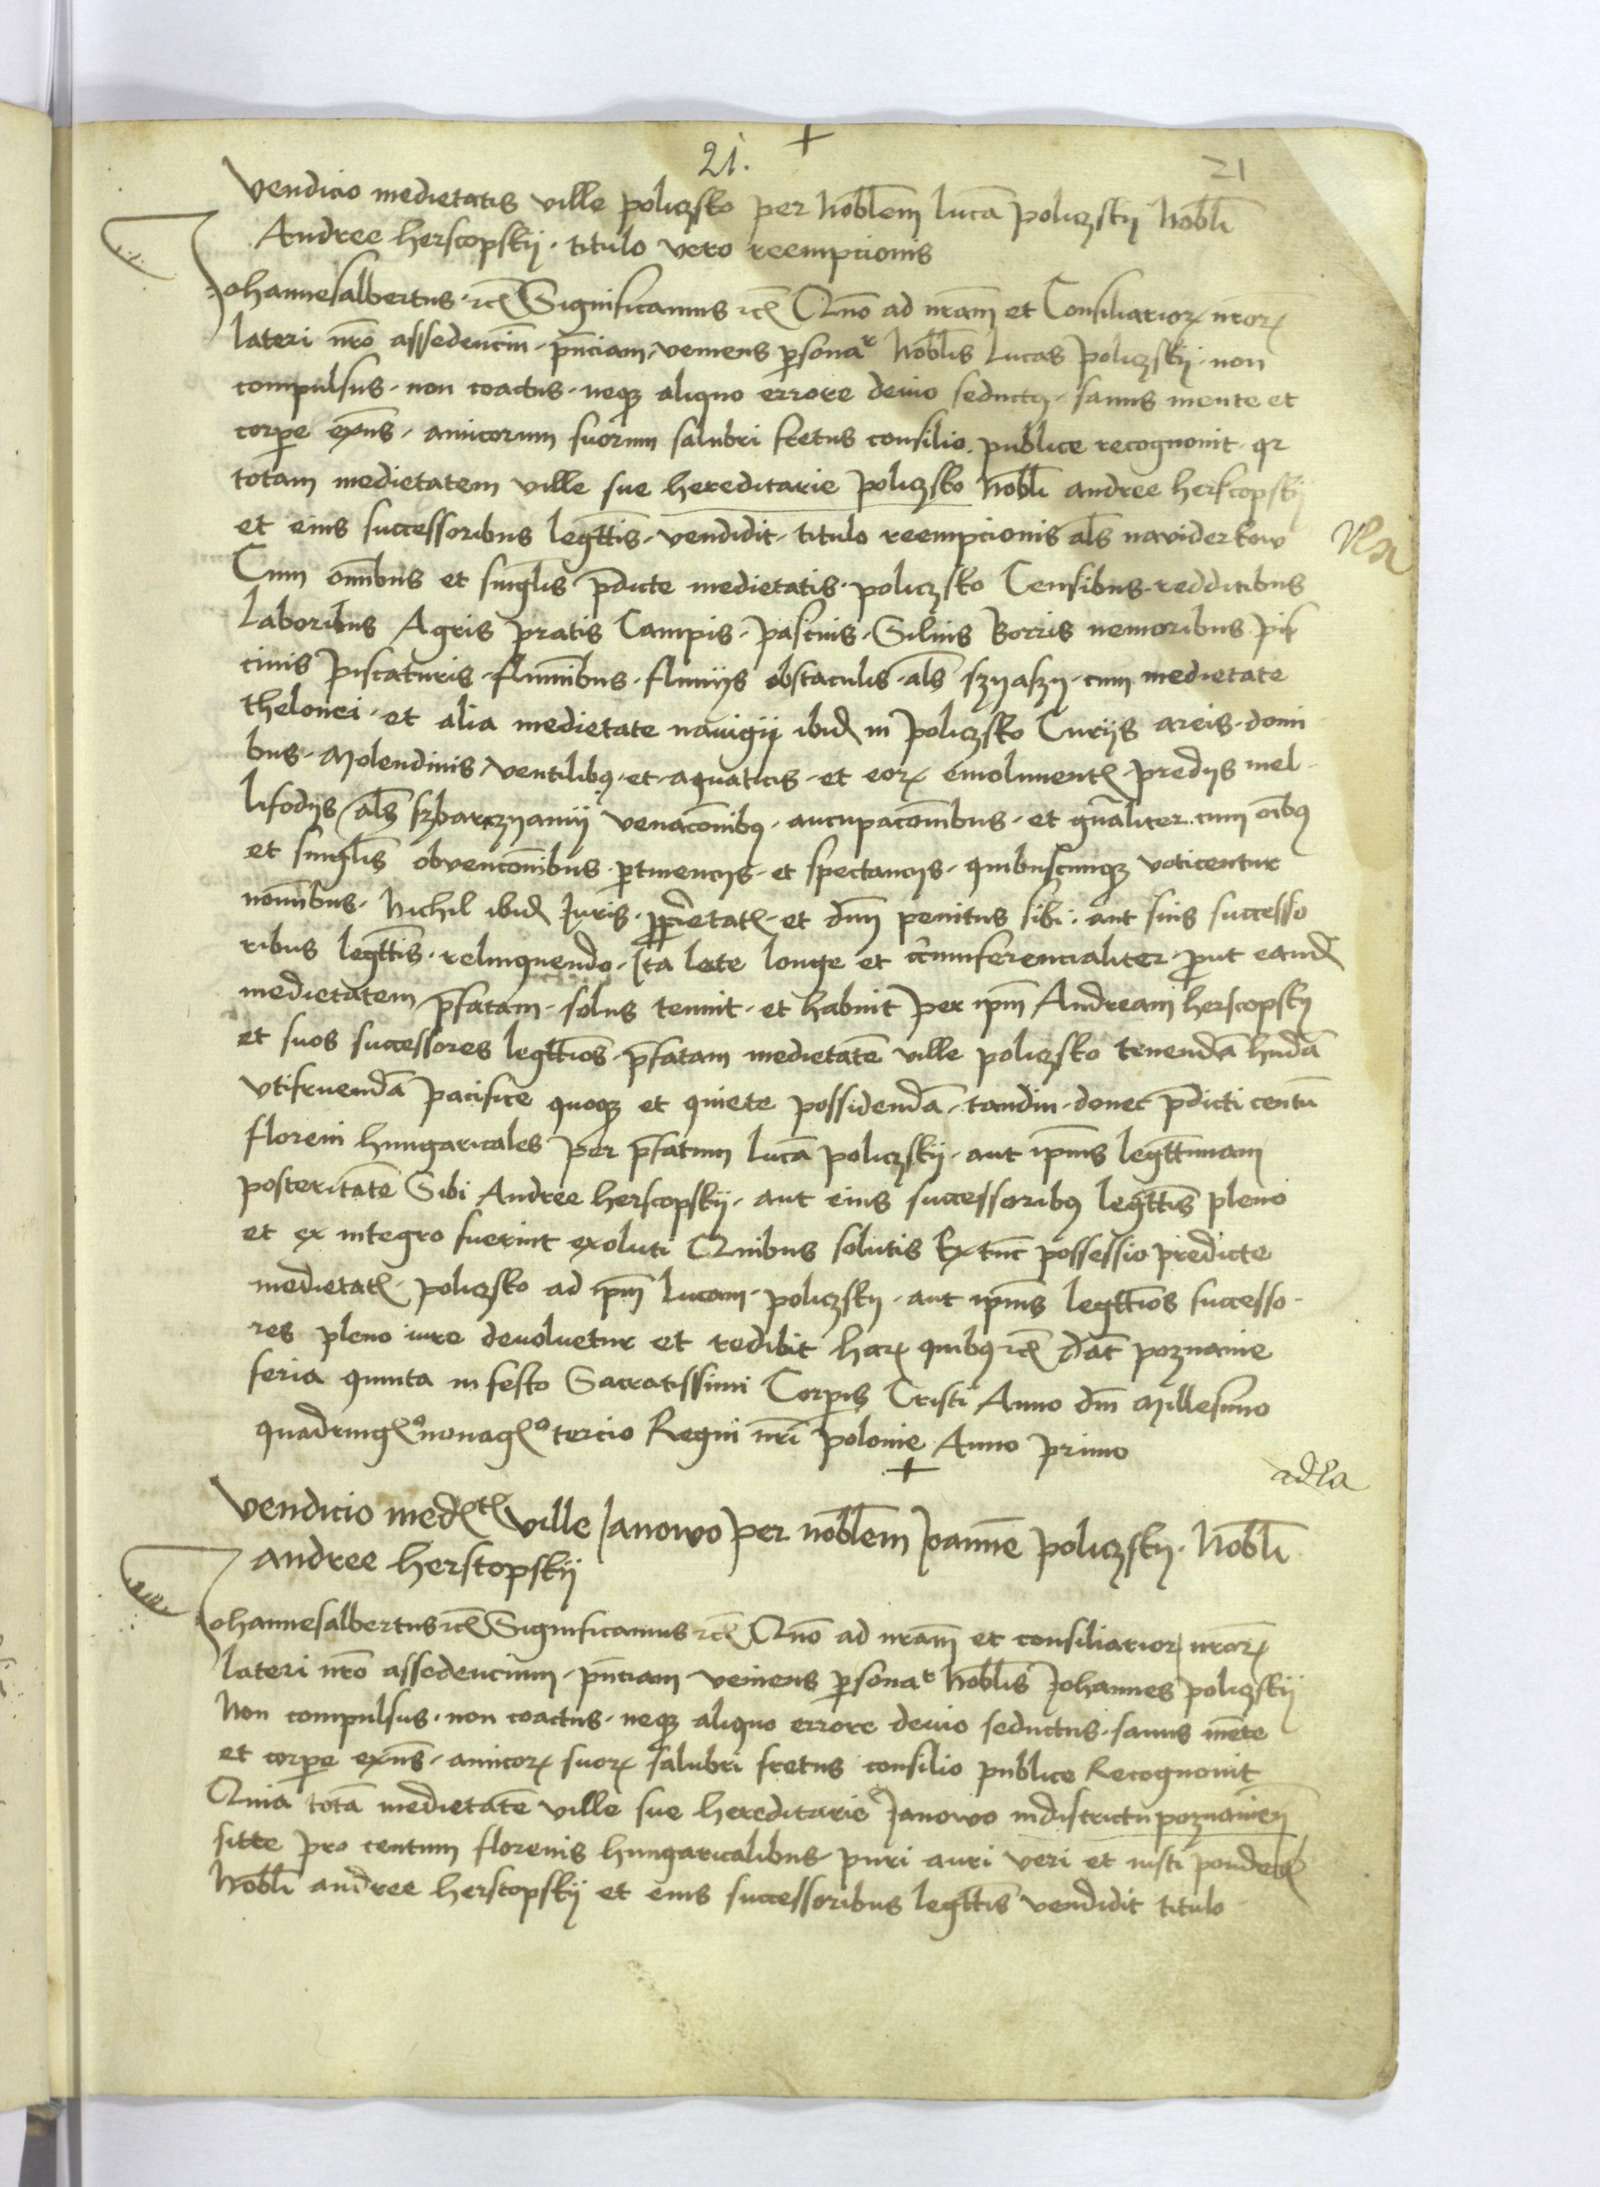 21. +
21
Vendicio medietatis ville policzsko per Nobłem lucā policzskij Nobłi
Andree herscopskij · titulo vero reempcionis
Johannesalbertus · rcꝫ Significamus rcꝫ Quō ad nrām et Consiliarioꝝ nroꝝ
lateri nrō assedenciū · pn̄ciam · veniens ꝑsonaᵗʳ Nobłis Lucas policzskij · non
compulsus · non coactus · neqꝫ aliquo errore deuio seductꝰ · sanus mente et
corꝑe exn̄s · amicorum suorum salubri fretus consilio · publice recognouit · qꝛ
totam medietatem ville sue hereditarie policzsko Nobłi andree herscopskij
et eius successoribus legttīs · vendidit · titulo reempcionis ałs naviderkow
Cum om̄ibus et singłis p̄dicte medietatis · policzsko Censibus · redditibus
Laboribus Agris pratis Campis · pascuis · Siluis Borris nemoribus pis
cinis piscaturis · flumībus · fluuijs obstaculis · ałs · szyaszy · cum medietate
thelonei · et alia medietate nauigij ibidꝫ in policzsko Curijs areis · domi
bus · Molendinis ventilibꝰ · et · aquaticis · et eoꝝ emolumentꝭ · predijs mel
lifodijs ałs szbarczyamij venacōnibꝰ · aucupacōnibus · et gn̄aliter · cum oībꝰ
et singłis obvencōnibus · ꝑtinencijs · et spectancijs · quibuscumqꝫ voticentur
nomībus · Nichil ibidꝫ Juris · ꝓprietatꝭ · et dnīj penitus sibi · aut suis successo
ribus legttīs · relinquendo · Ita late longe et circumferencialiter · ꝓut eandꝫ
medietatem · p̄fatam · solus tenuit · et habuit per ipm̄ Andream herscopskij
et suos successores legttīos · p̄fatam medietatē ville policzsko tenendā hndā
vtifruendā pacifice quoqꝫ et quiete possidendā · tandiu · donec p̄dicti centū
floreni hungaricales per p̄fatum lucā policzskij · aut ipīus legttīmam
posteritatē Sibi Andree herscopskij · aut eius successoribꝰ legttīs pleno
et ex integro fuerint exoluti Quibus solutis Ex tūc possessio predicte
medietatꝭ · policzsko ad ipm̄ lucam · policzskij · aut ipīus legttīos successo
res pleno iure deuoluetur et redibit haꝝ quibꝰ rcꝫ dat̄ poznanie
feria quinta in festo Sacratissimi Corꝑis Cristi Anno dnī Millesimo
quadringꝭᵒ nonagꝭᵒ tercio Regni nrī polonie Anno primo
+
adła
Vendicio medꝭᵗꝭ ville Janowo per nobłem Joannē policzskij · Nobłi
andree herscopskij
Johannesalbertus rcꝫ Significamus rcꝫ Quō ad nrām et consiliarioꝝ nroꝝ
lateri nrō assedencium · pn̄ciam veniens ꝑsonaᵗʳ Nobłis Johannes policzskij
Non compulsus · non coactus · neqꝫ aliquo errore deuio seductus · sanus mēte
et corꝑe exn̄s · amicoꝝ suoꝝ salubri fretus consilio publice Recognouit
Quia totā medietatē ville sue hereditarie Janowo in districtu poznanien̄
sitte pro centum florenis hungaricalibus puri auri veri et iusti ponderꝭ
Nobłi andree herscopskij et eius successoribus legttīs vendidit titulo